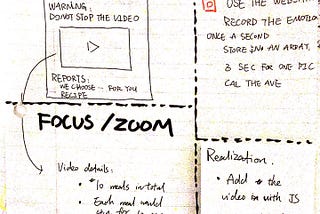 WARNING:
DO NOT STOP THE VIDEO
REPORTS:
WE CHOOSE FOR YOU
RECIPE
FOCUS / ZOOM
Video details:
10 meals in total
Each meal
USE THE
RECORD THE EMOTION
ONCE A SECOND
STORE IN AN ARRAY,
3 SEC FOR ONE PIC
CAL THE AVE
Realization.
Add the
video in with JS